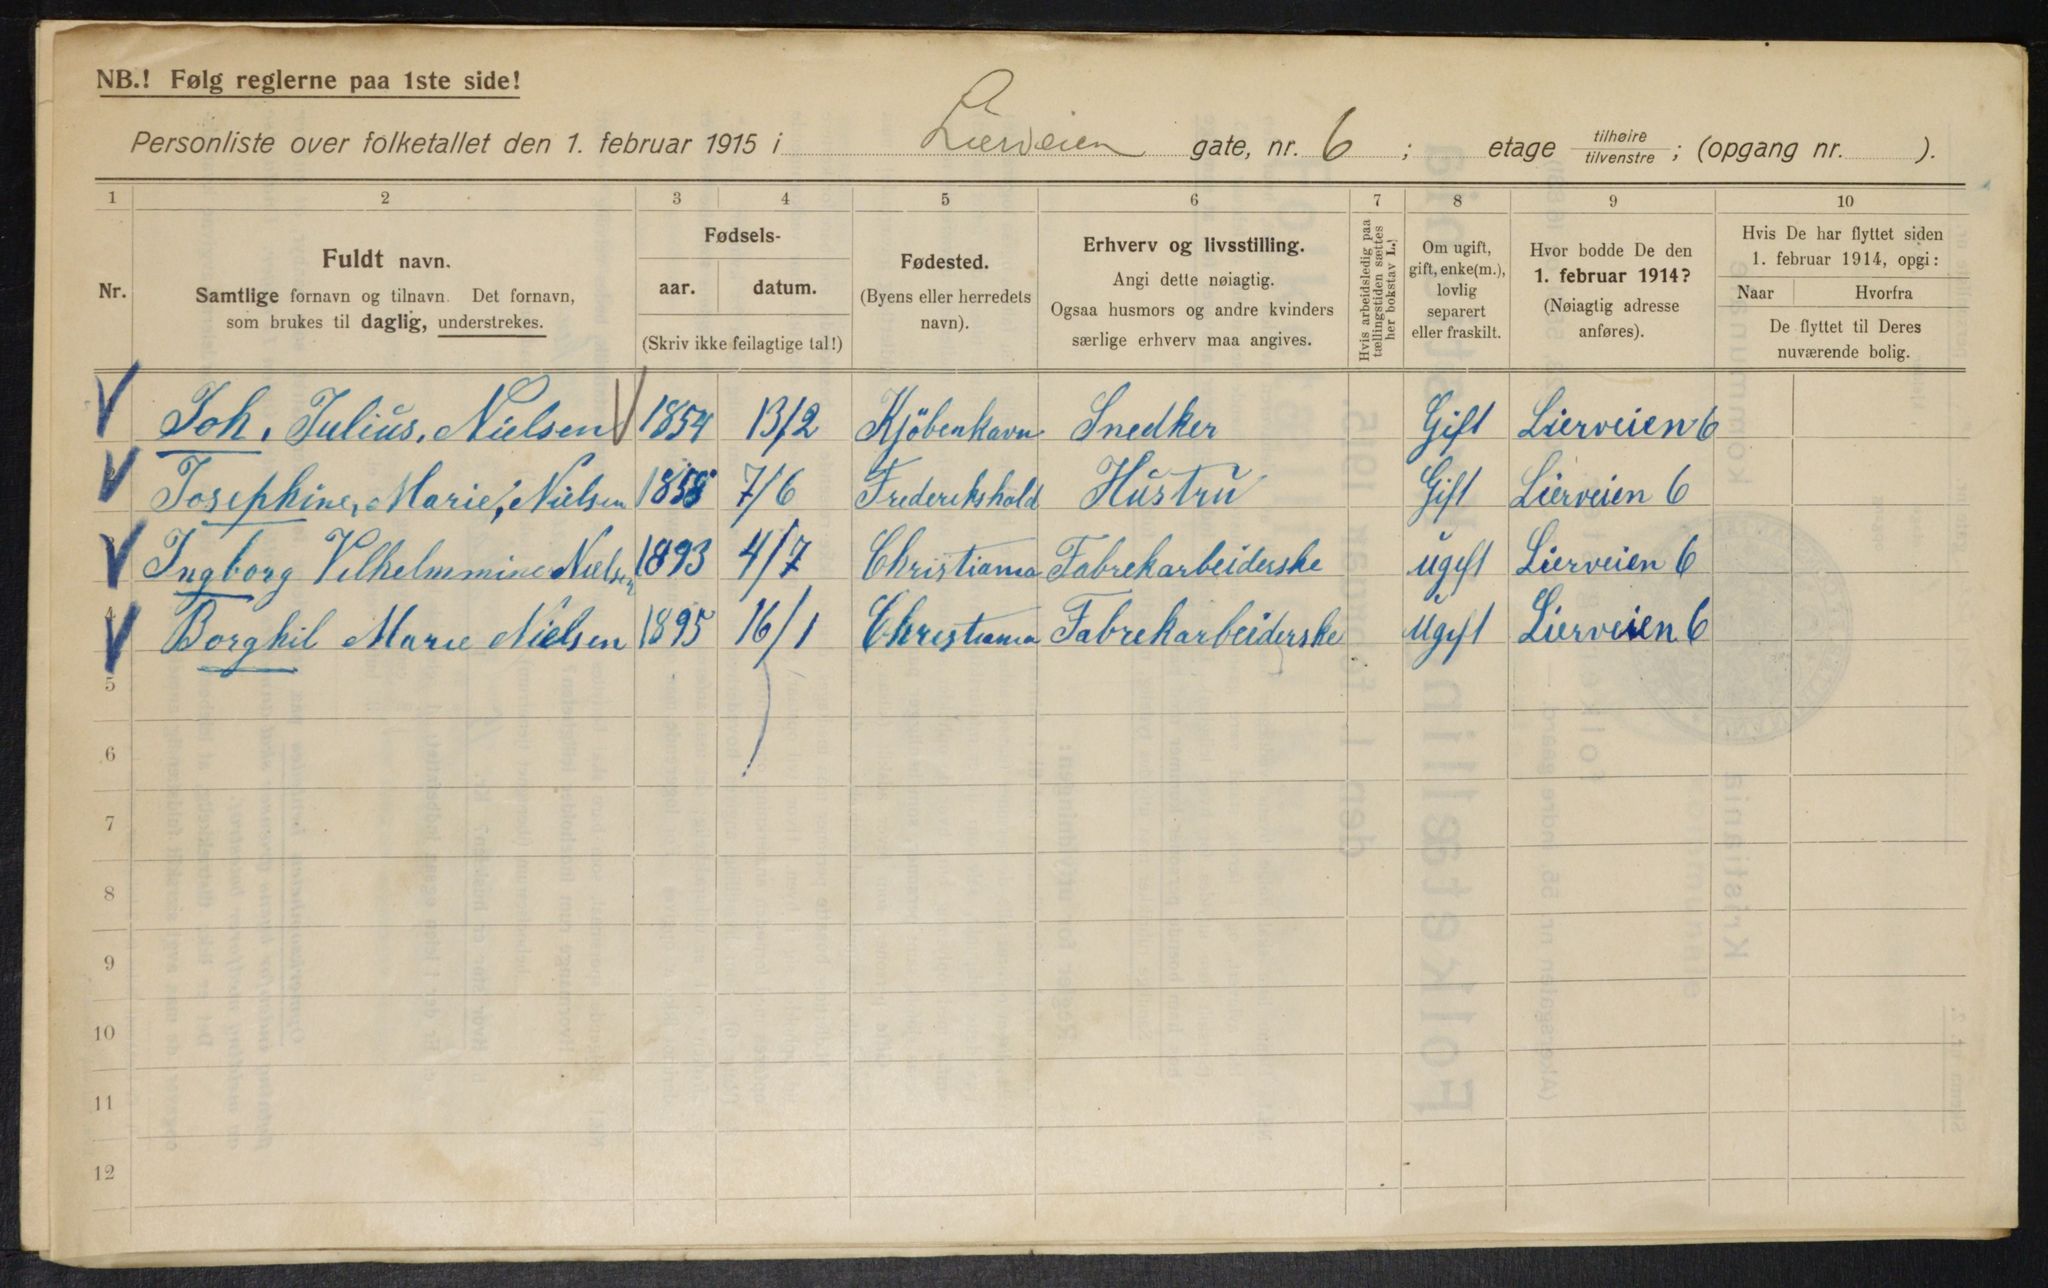 NB.! Følg reglerne paa 1ste side!
Personliste over folketallet den 1. februar 1915 i Lierveien gate, nr. 6; etage tilhøire/tilvenstre; (opgang nr. ).
1 2 3 4 5 6 7 8 9 10
Nr.
Fuldt navn.
Samtlige fornavn og tilnavn. Det fornavn,
som brukes til daglig, understrekes.
Fødsels-
aar. datum.
(Skriv ikke feilagtige tal!)
Fødested.
(Byens eller herredets
navn).
Erhverv og livsstilling.
Angi dette nøiagtig.
Ogsaa husmors og andre kvinders
særlige erhverv maa angives.
Hvis arbeidsledig paa
tællingstiden sættes
her bokstav L.)
Om ugift,
gift, enke(m.),
lovlig
separert
eller fraskilt.
Hvor bodde De den
1. februar 1914?
(Nøiagtig adresse
anføres).
Hvis De har flyttet siden
1. februar 1914, opgi:
Naar Hvorfra
De flyttet til Deres
nuværende bolig.
Joh. Julius. Nielsen 1854 13/2 Kjöbenhavn Snedker Gift Lierveien 6
Josephine, Marie, Nielsen 1858 7/6 Frederikshald Hustru Gift Lierveien 6
Ingborg Vilhelmmine Nielsen 1893 4/7 Christiania Fabrekarbeiderske ugift Lierveien 6
4 Borghil Marie Nielsen 1895 16/1 Christiania Fabrekarbeiderske Ugift Lierveien 6
5
6
7
8
9
10
11
12